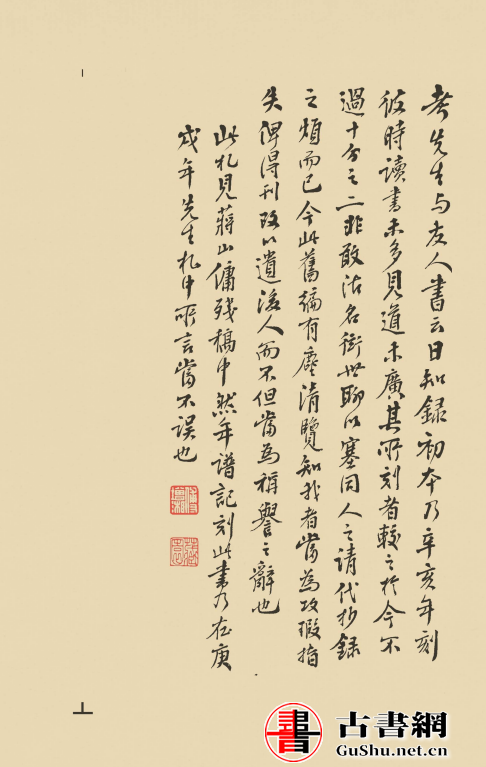 考先生与友人書云日知錄初本乃辛亥年刻
彼時讀書未多見道未廣其所刻者較之於今不
過十分之二非敢沽名衒世聊以塞同人之請代抄錄
之煩而已今此舊編有塵清覽知我者當為攻瑕指
失俾得刊改以遺後人而不但當為稱譽之辭也
此札見蔣山傭殘稿中然年譜記刻此書乃在庚
戌年先生札中所言當不誤也
古書網
GuShu.net.cn